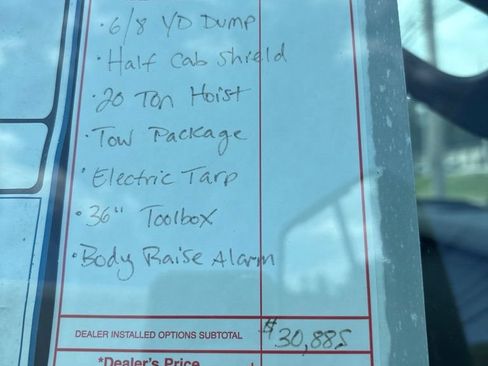 · 6/8 YD Dump
· Half Cab Shield
· 20 Ton Hoist
· Tow Package
· Electric Tarp
· 36" Toolbox
· Body Raise Alarm
DEALER INSTALLED OPTIONS SUBTOTAL $30,885
*Dealer's Price